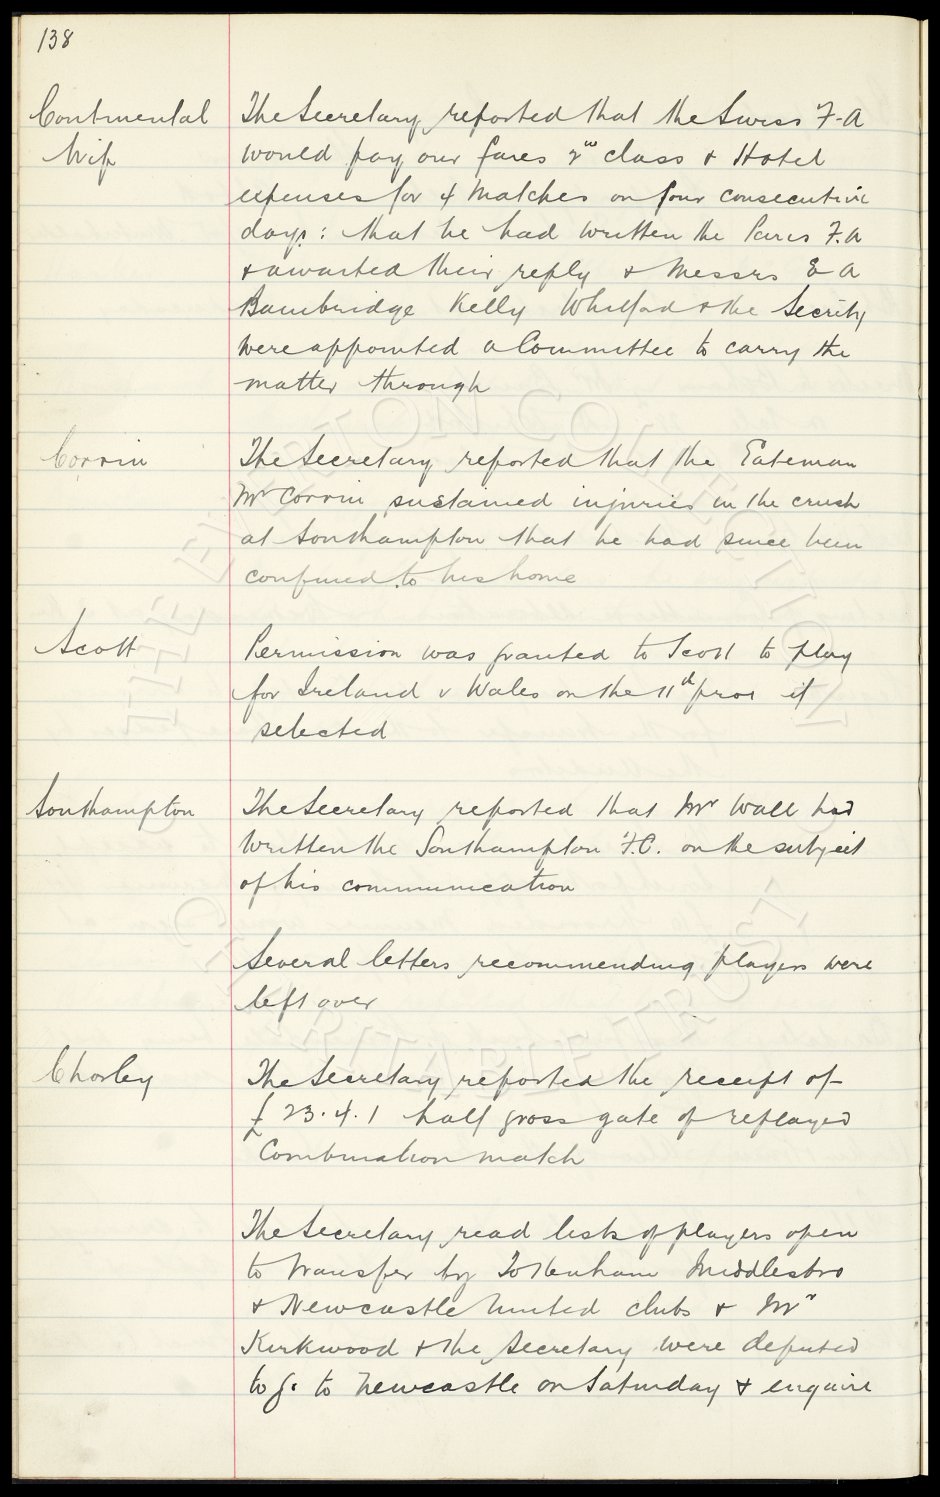 138
Continental
Trip
The Secretary reported that the Swiss F.A
would pay our fares 2nd class & Hotel
expenses for 4 Matches on four consecutive
days: that he had written the Paris F.A
& awaited their reply & Messrs E A
Bainbridge Kelly Whitford & the Secrety
were appointed a Committee to carry the
matter through
Corrin
The Secretary reported that the Gateman
Mr Corrin sustained injuries in the crush
at Southampton that he had since been
confined to his home
Scott
Permission was granted to Scott to play
for Ireland v Wales on the 11th prox if
selected
Southampton
The Secretary reported that Mr Wall had
written the Southampton F.C. on the subject
of his communication
Several letters recommending players were
left over
Chorley
The Secretary reported the receipt of
£23.4.1 half gross gate of replayed
Combination match
The Secretary read lists of players open
to transfer by Tottenham Middlesbro
& Newcastle United clubs & Mr
Kirkwood & the Secretary were deputed
to go to Newcastle on Saturday & enquire
THE EVERTON COLLECTION
CHARITABLE TRUST